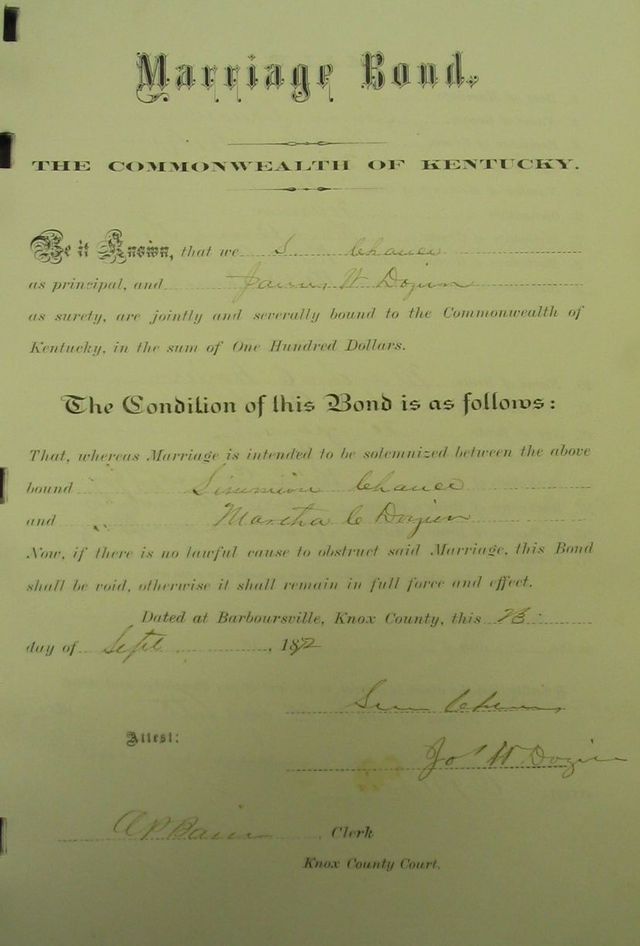 Marriage Bond.
THE COMMONWEALTH OF KENTUCKY.
Be it Known, that we S. Chance
as principal, and James W Dozier
as surety, are jointly and severally bound to the Commonwealth of
Kentucky, in the sum of One Hundred Dollars.
The Condition of this Bond is as follows:
That, whereas Marriage is intended to be solemnized between the above
bound Chance
and Martha C Dozier
Now, if there is no lawful cause to obstruct said Marriage, this Bond
shall be void, otherwise it shall remain in full force and effect.
Dated at Barboursville, Knox County, this
day of Sept, 18
Attest:
Jas W Dozier
Clerk
Knox County Court.